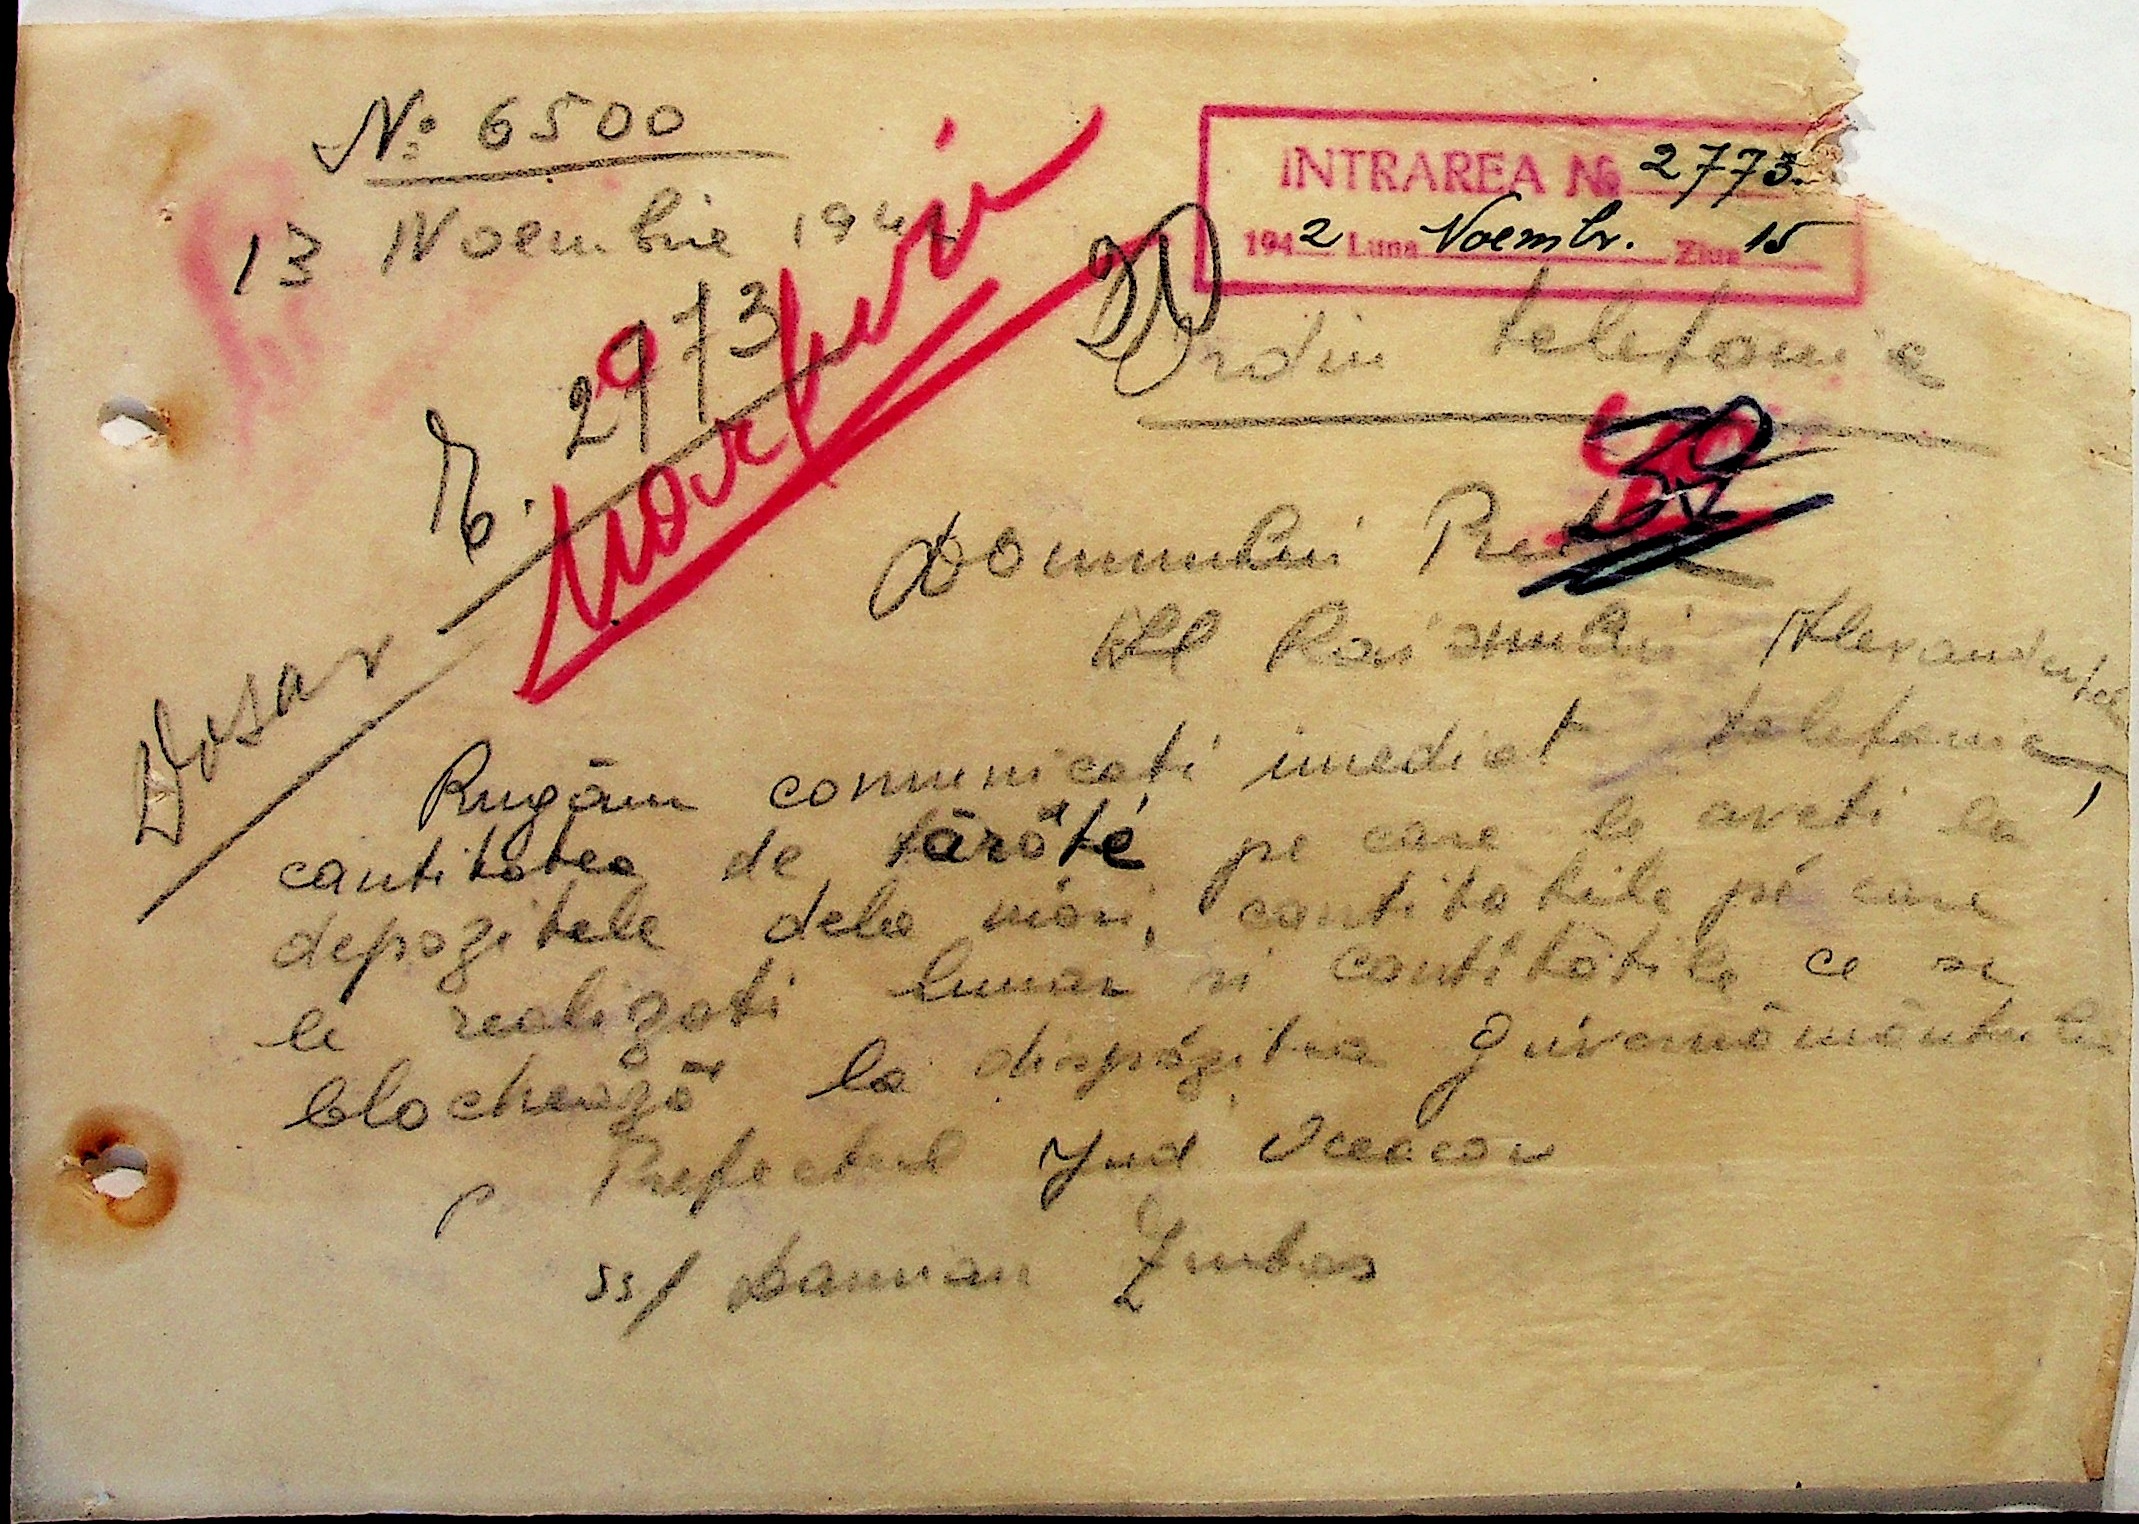 N: 6500
13 Noembrie 1942
INTRAREA No 2773.
1942 Luna Noembr. Ziua 15
Ordin telefonic
R. 2973
Dosar
Domnului Pretor
al Raionului Alexandrfeld
Rugăm comunicati imediat telefonic,
cantitatea de tărâte pe care le aveti la
depozitele dela mori, cantitătiile pe care
le realizati lunar si cantitătile ce se
blochează la dispozitia guvernământului
p. Prefectul Jud Oceacov
ss/ Damian